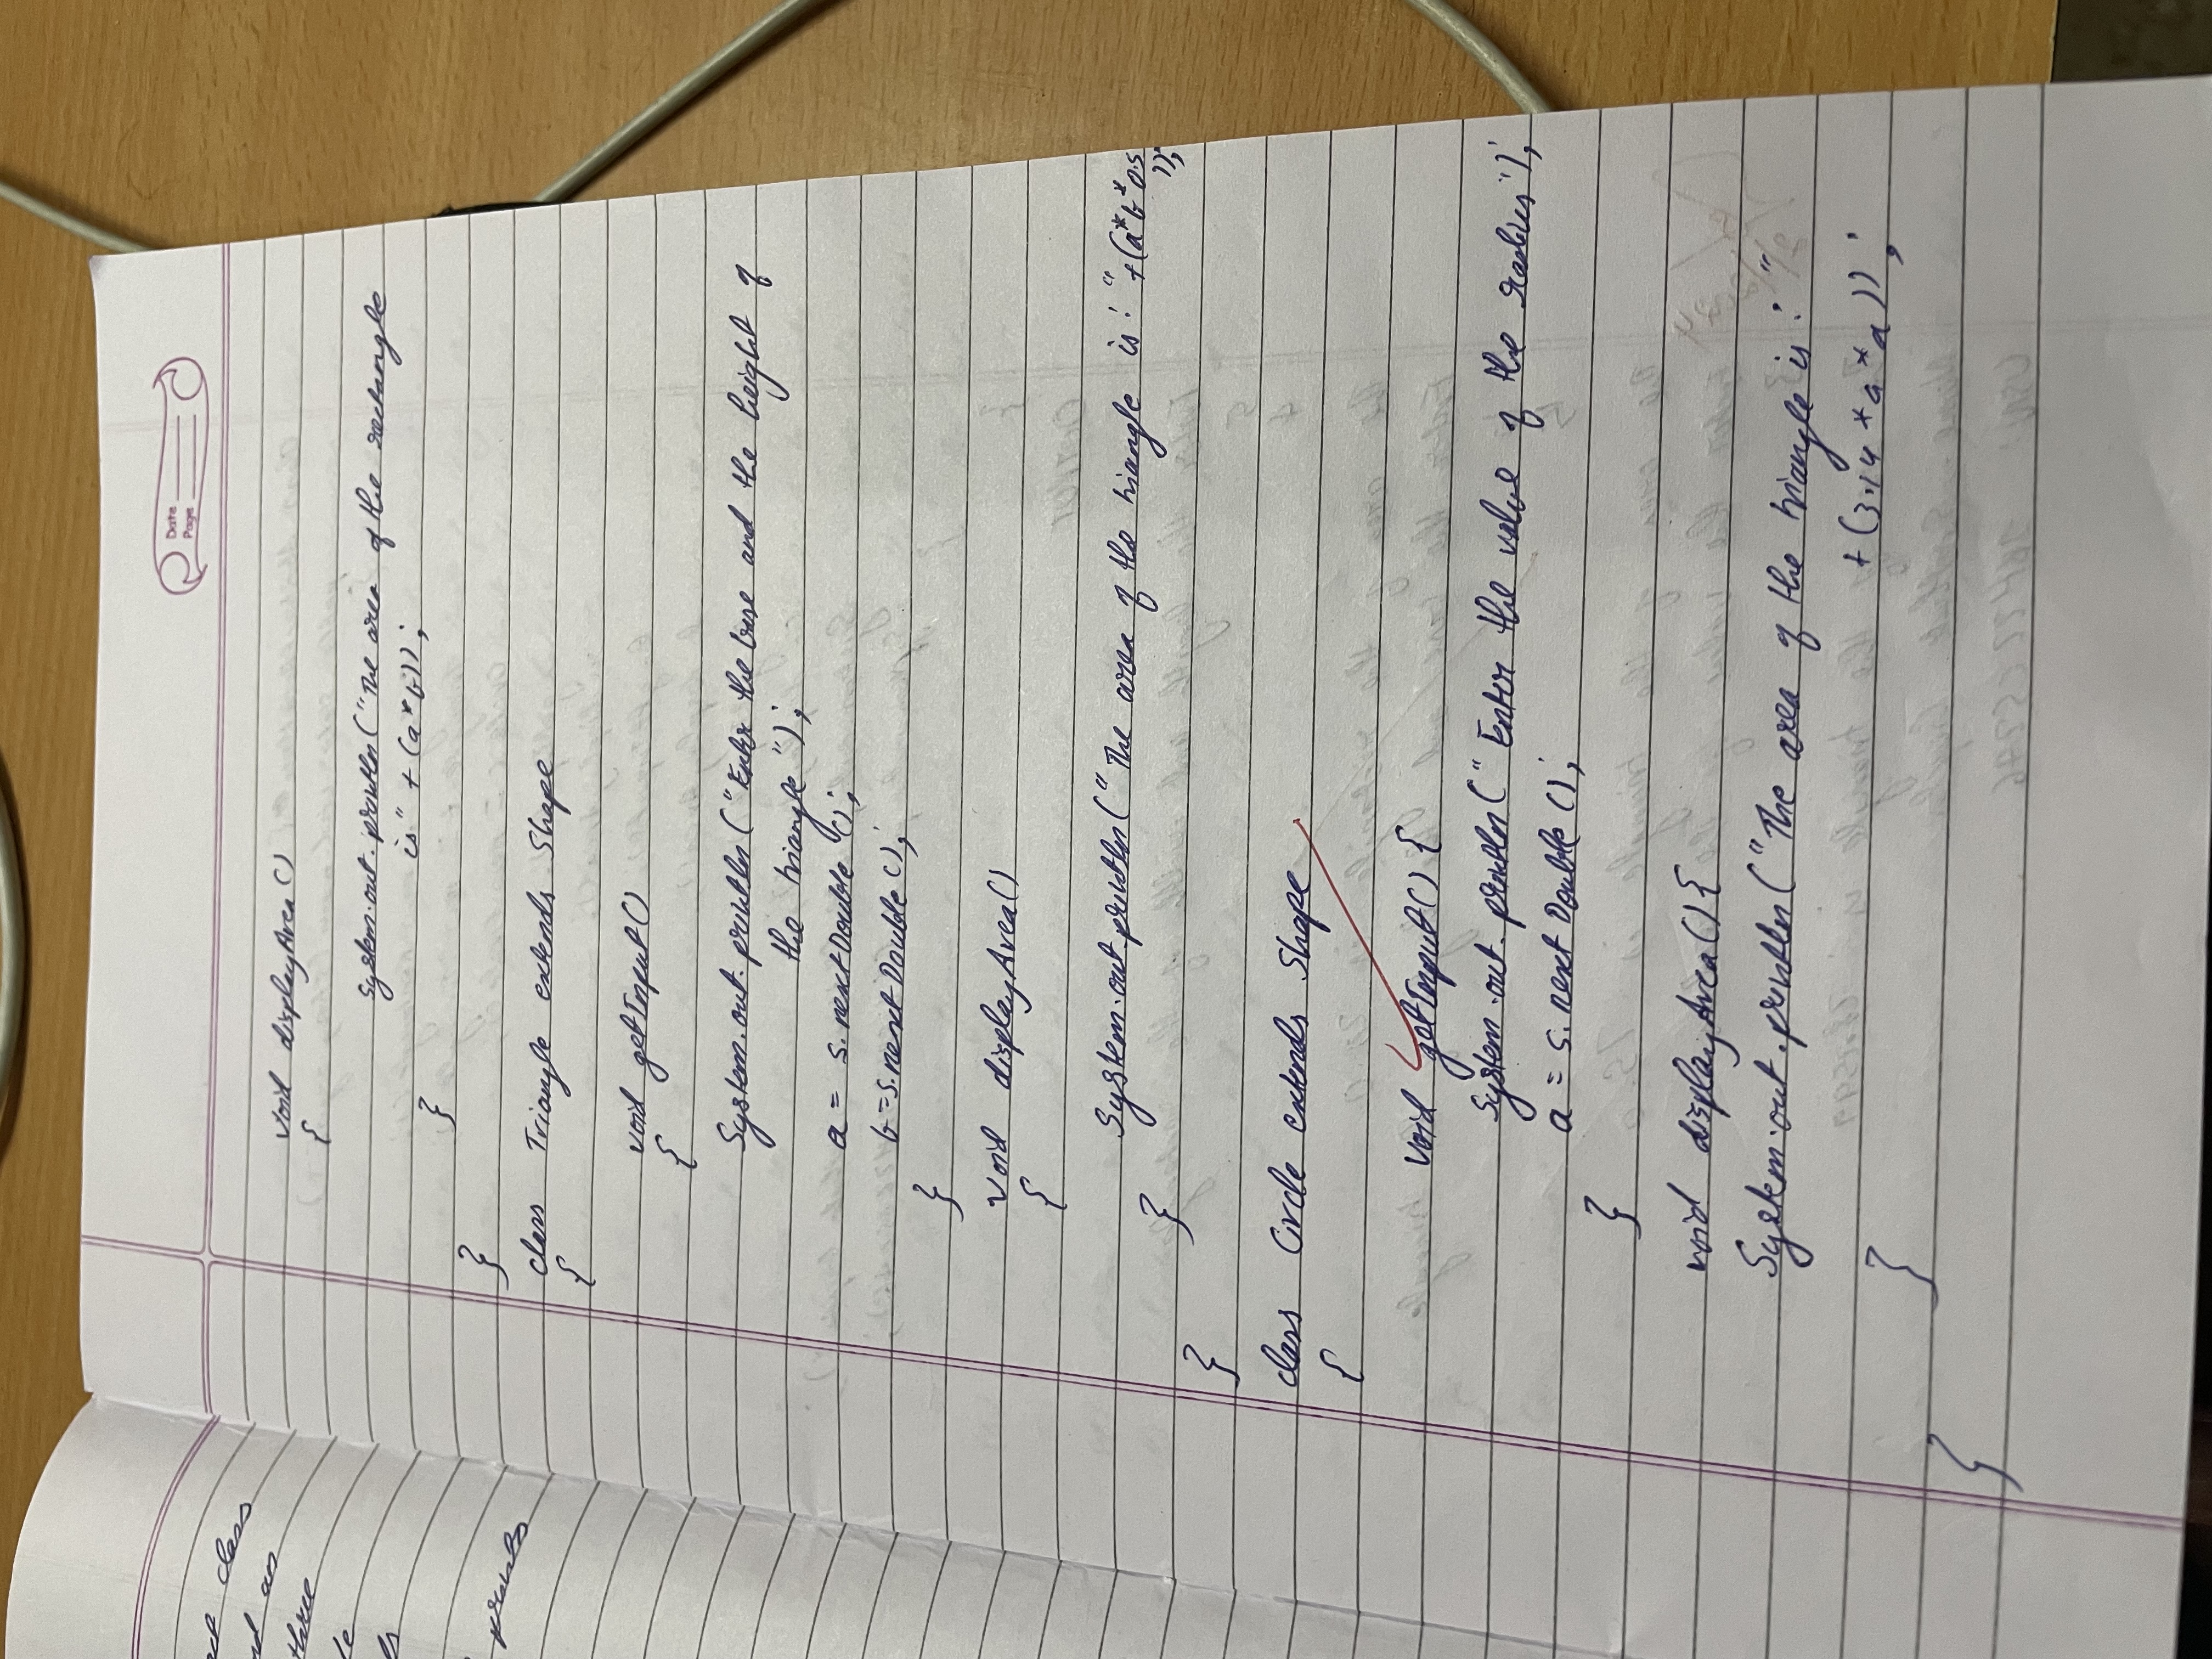 ct class
nd an
three
le
ls
prints
Date
Page
void displayArea()
{
System.out.println("The area of the rectangle
is" + (a*b));
}
}
class Triangle extends Shape
{
void getInput()
{
System.out.println("Enter the base and the height of
the triangle");
a = s.nextDouble();
b=s.nextDouble();
}
void displayArea()
{
System.out.println("The area of the triangle is: "+(a*b*0.5
));
}
}
class Circle extends Shape
{
void getInput() {
System.out.println("Enter the value of the radius");
a = s.nextDouble();
}
void displayArea(){
System.out.println("The area of the triangle is: "
+ (3.14 *a*a));
}
}